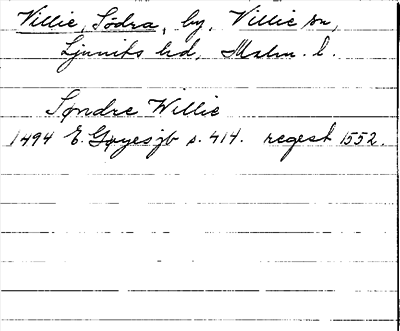 Villie, Södra, by, Villie sn,
Ljunits hd, Malm. l.
Søndre Willie
1494 E. Gøyesjb s. 414. regest 1552.